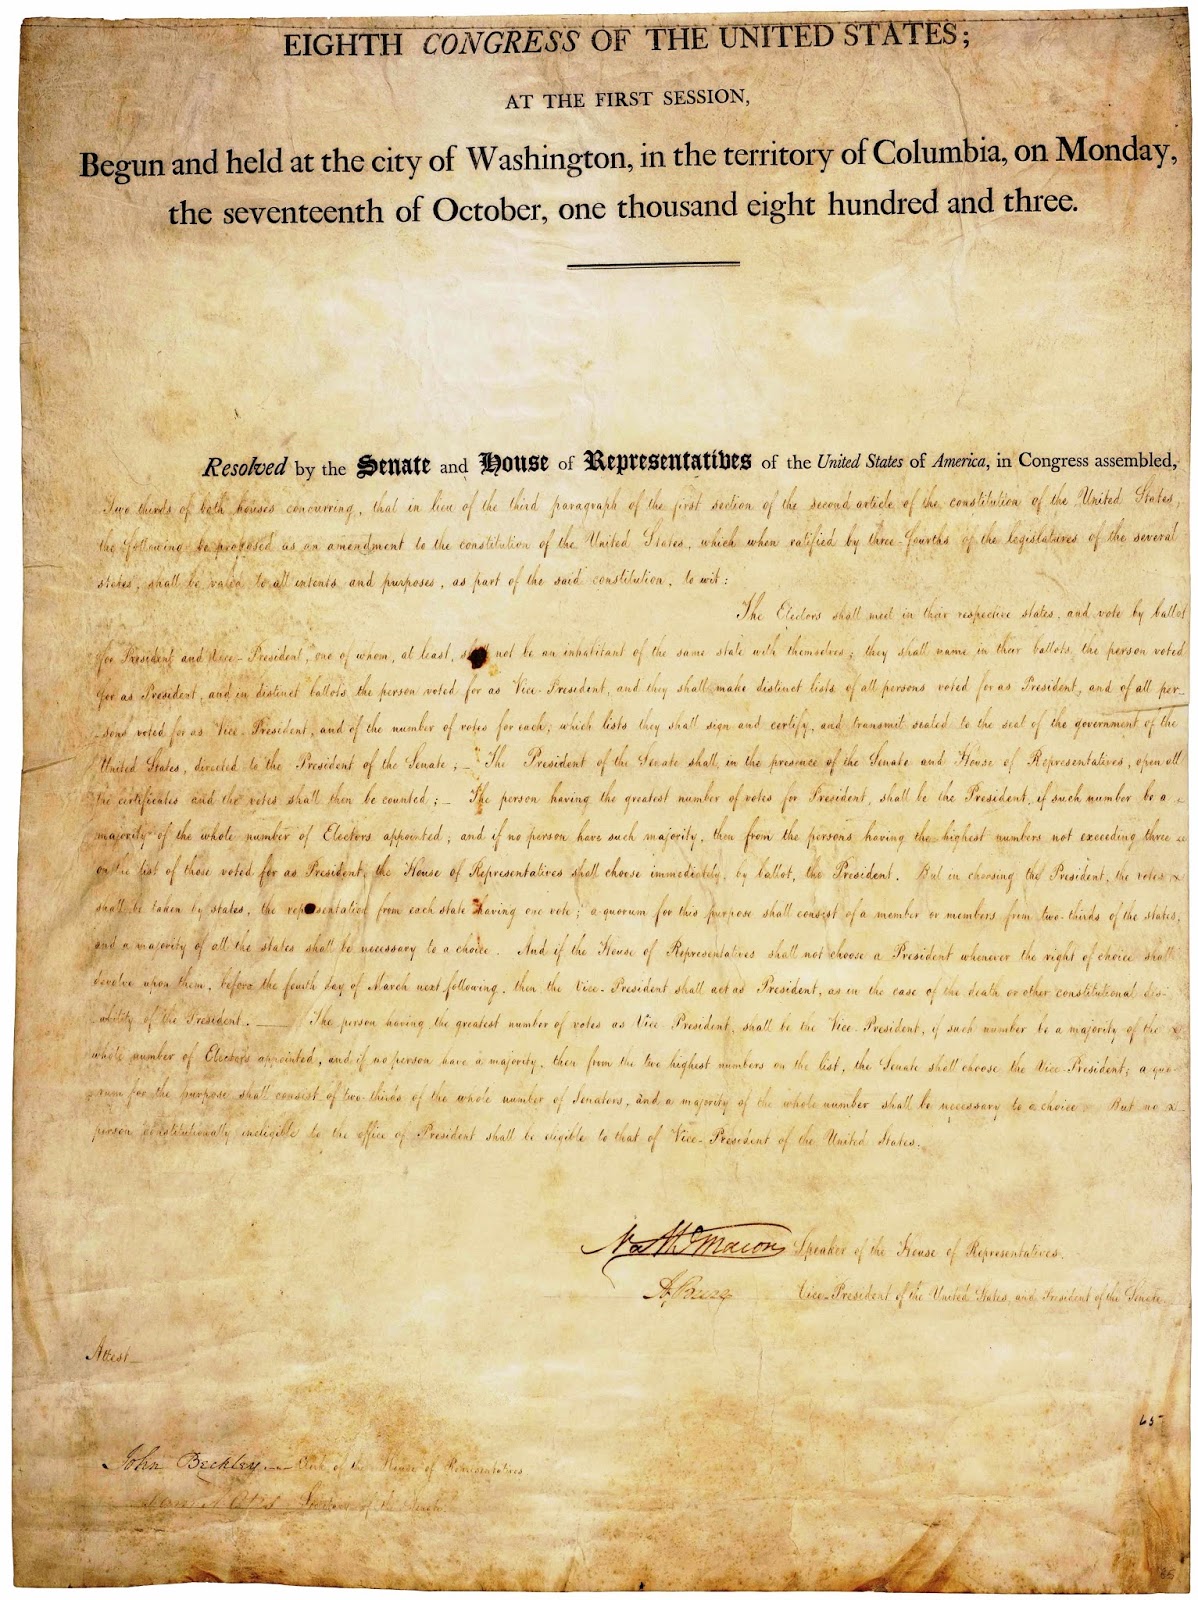 EIGHTH CONGRESS OF THE UNITED STATES;
AT THE FIRST SESSION,
Begun and held at the city of Washington, in the territory of Columbia, on Monday,
the seventeenth of October, one thousand eight hundred and three.
Resolved by the Senate and House of Representatives of the United States of America, in Congress assembled,
Two thirds of both houses concurring, that in lieu of the third paragraph of the first section of the second article of the constitution of the United States,
the following be proposed as an amendment to the constitution of the United States, which when ratified by three-fourths of the legislatures of the several
states, shall be valid to all intents and purposes, as part of the said constitution, to wit:
The Electors shall meet in their respective states, and vote by ballot
for President and Vice-President, one of whom, at least, shall not be an inhabitant of the same state with themselves; they shall name in their ballots the person voted
for as President, and in distinct ballots the person voted for as Vice-President, and they shall make distinct lists of all persons voted for as President, and of all per-
sons voted for as Vice-President, and of the number of votes for each; which lists they shall sign and certify, and transmit sealed to the seat of the government of the
United States, directed to the President of the Senate;_ The President of the Senate shall, in the presence of the Senate and House of Representatives, open all
the certificates and the votes shall then be counted;_ The person having the greatest number of votes for President, shall be the President, if such number be a
majority of the whole number of Electors appointed; and if no person have such majority, then from the persons having the highest numbers not exceeding three
on the list of those voted for as President, the House of Representatives shall choose immediately, by ballot, the President. But in choosing the President, the votes
shall be taken by states, the representation from each state having one vote; a quorum for this purpose shall consist of a member or members from two-thirds of the states,
and a majority of all the states shall be necessary to a choice. And if the House of Representatives shall not choose a President whenever the right of choice shall
devolve upon them, before the fourth day of March next following, then the Vice-President shall act as President, as in the case of the death or other constitutional dis-
ability of the President.___ The person having the greatest number of votes as Vice-President, shall be the Vice-President, if such number be a majority of the
whole number of Electors appointed, and if no person have a majority, then from the two highest numbers on the list, the Senate shall choose the Vice-President; a quo-
rum for the purpose shall consist of two-thirds of the whole number of Senators, and a majority of the whole number shall be necessary to a choice. But no
person constitutionally ineligible to the office of President shall be eligible to that of Vice-President of the United States.
Nathl Macon Speaker of the House of Representatives.
A. Burr Vice-President of the United States, and President of the Senate.
Attest_
65
John Beckley Clerk of the House of Representatives
Sam A Otis Secretary of the Senate